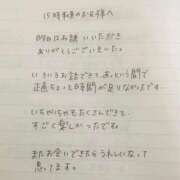 15時半のお客様へ
昨日はお誘いいただき
ありがとうございました。
いろいろお話できて、あっという間で
正直もっと時間が足りなかったです。
いちゃいちゃもたくさんできて、
すごく楽しかったです。
またお会いできたらうれしいなって
思ってます。